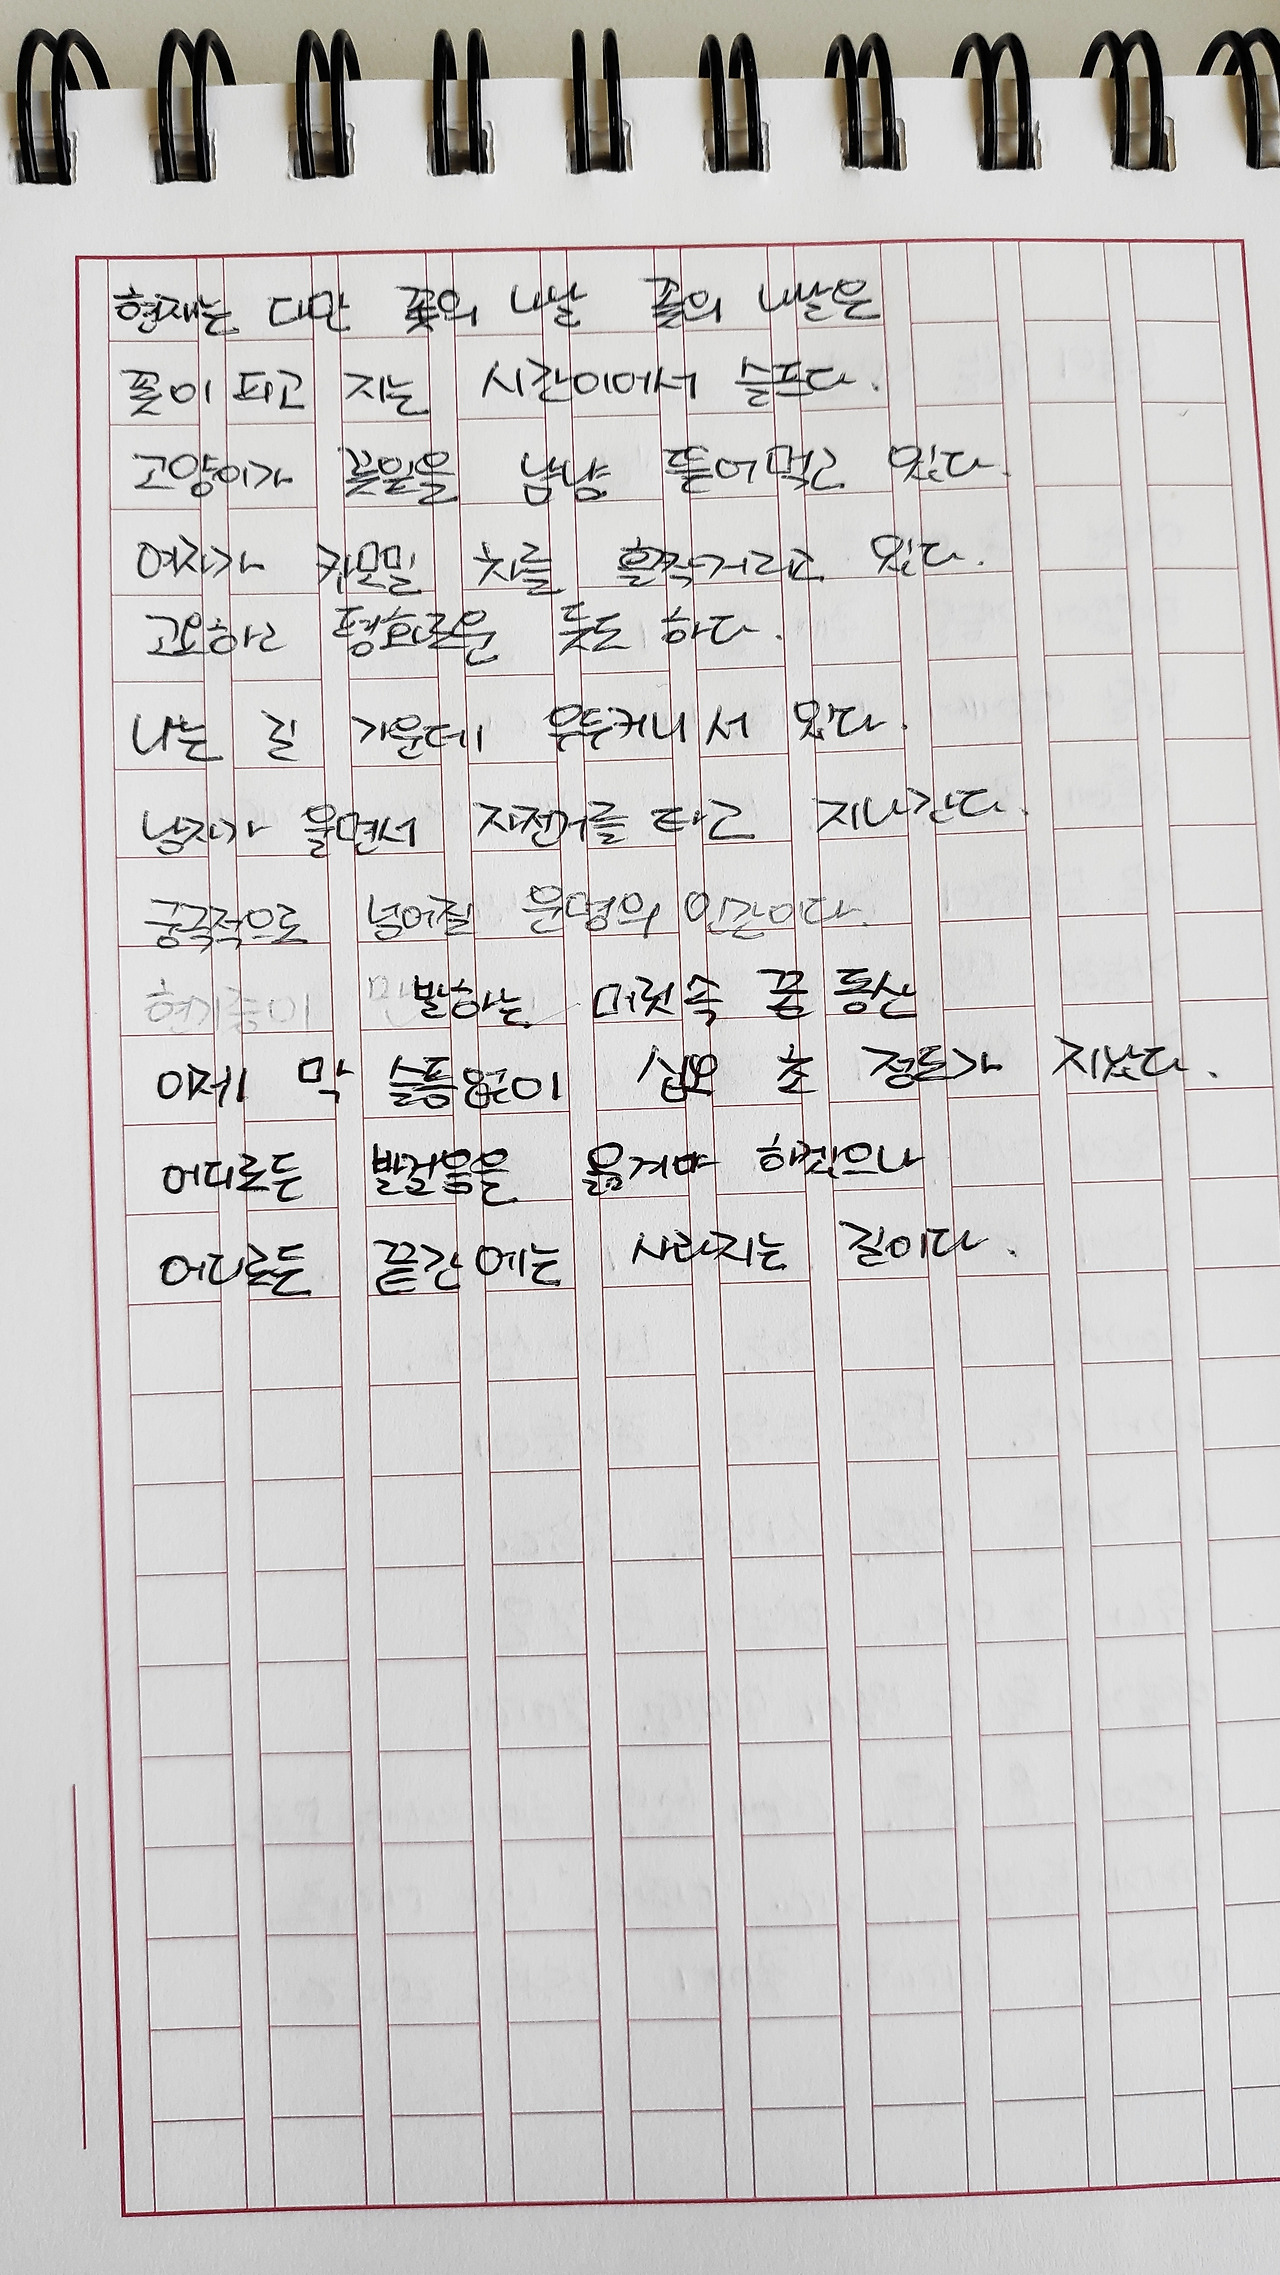 현재는 다만 꽃의 나날 꽃의 나날은
꽃이 피고 지는 시간이어서 슬프다.
고양이가 꽃잎을 냠냠 뜯어먹고 있다.
여자가 카모밀 차를 홀짝거리고 있다.
고요하고 평화로운 듯도 하다.
나는 길 가운데 우두커니 서 있다.
남자가 울면서 자전거를 타고 지나간다.
궁극적으로 넘어질 운명의 인간이다.
현기증이 만발하는 머릿속 꿈 동산
이제 막 슬픔없이 십오 초 정도가 지났다.
어디로든 발걸음을 옮겨야 하겠으나
어디로든 끝간에는 사라지는 길이다.